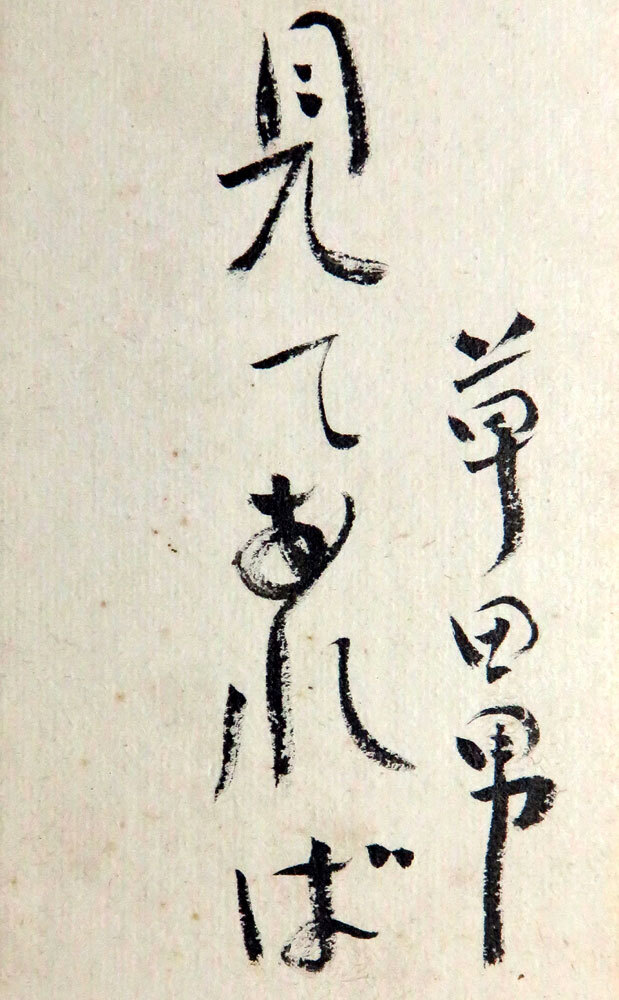 草田男
見てあれば